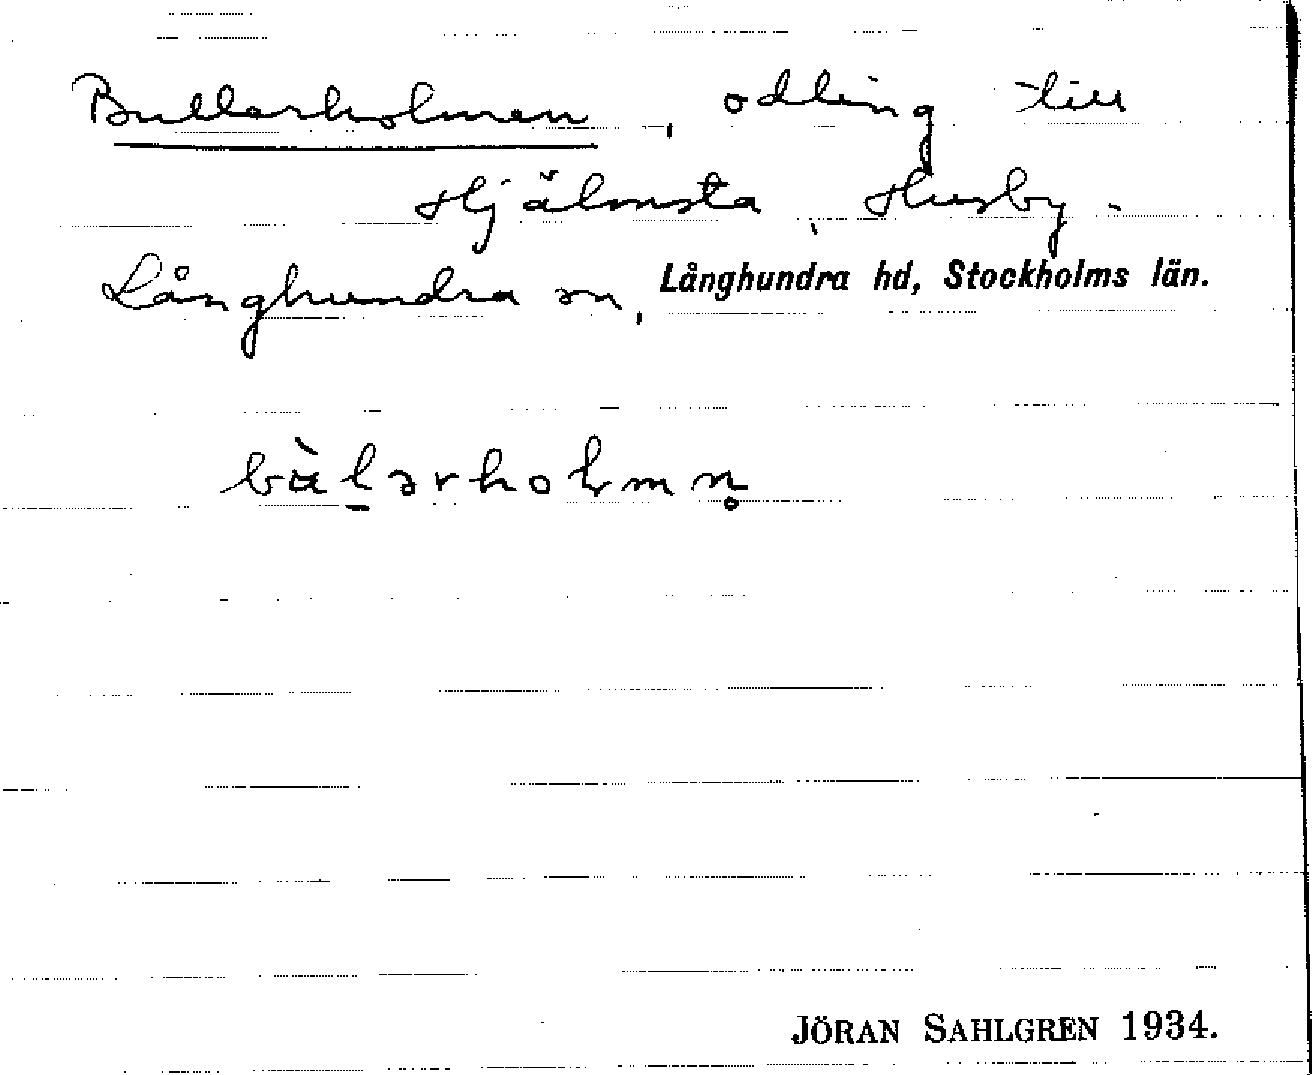 Bullerholmen, odling till
Hjälmsta, Husby-
Långhundra sn, Långhundra hd, Stockholms län.
JÖRAN SAHLGREN 1934.